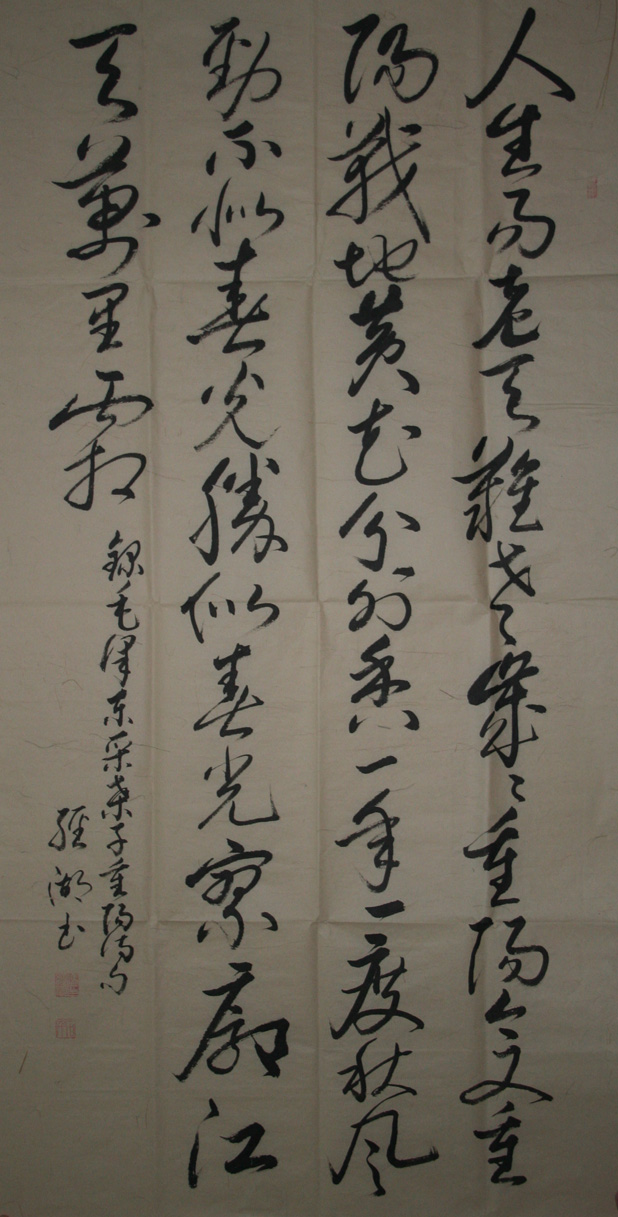 人生易老天難老歲々重陽今又重
陽戰地黄花分外香一年一度秋风
勁不似春光勝似春光寥廓江
天萬里霜
錄毛澤东采桑子重陽詩句
湖书